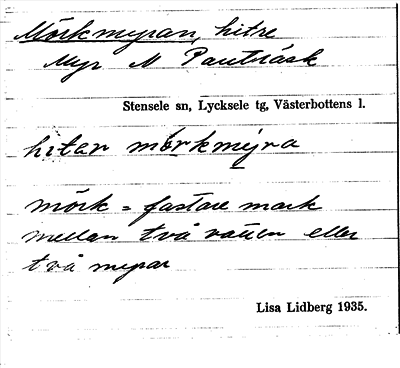 Mörkmyran, hitre
Myr N Pautträsk
Stensele sn, Lycksele tg, Västerbottens l.
hiter mörkmýra
mörk = fastare mark
mellan två vatten eller
två myrar
Lisa Lidberg 1935.